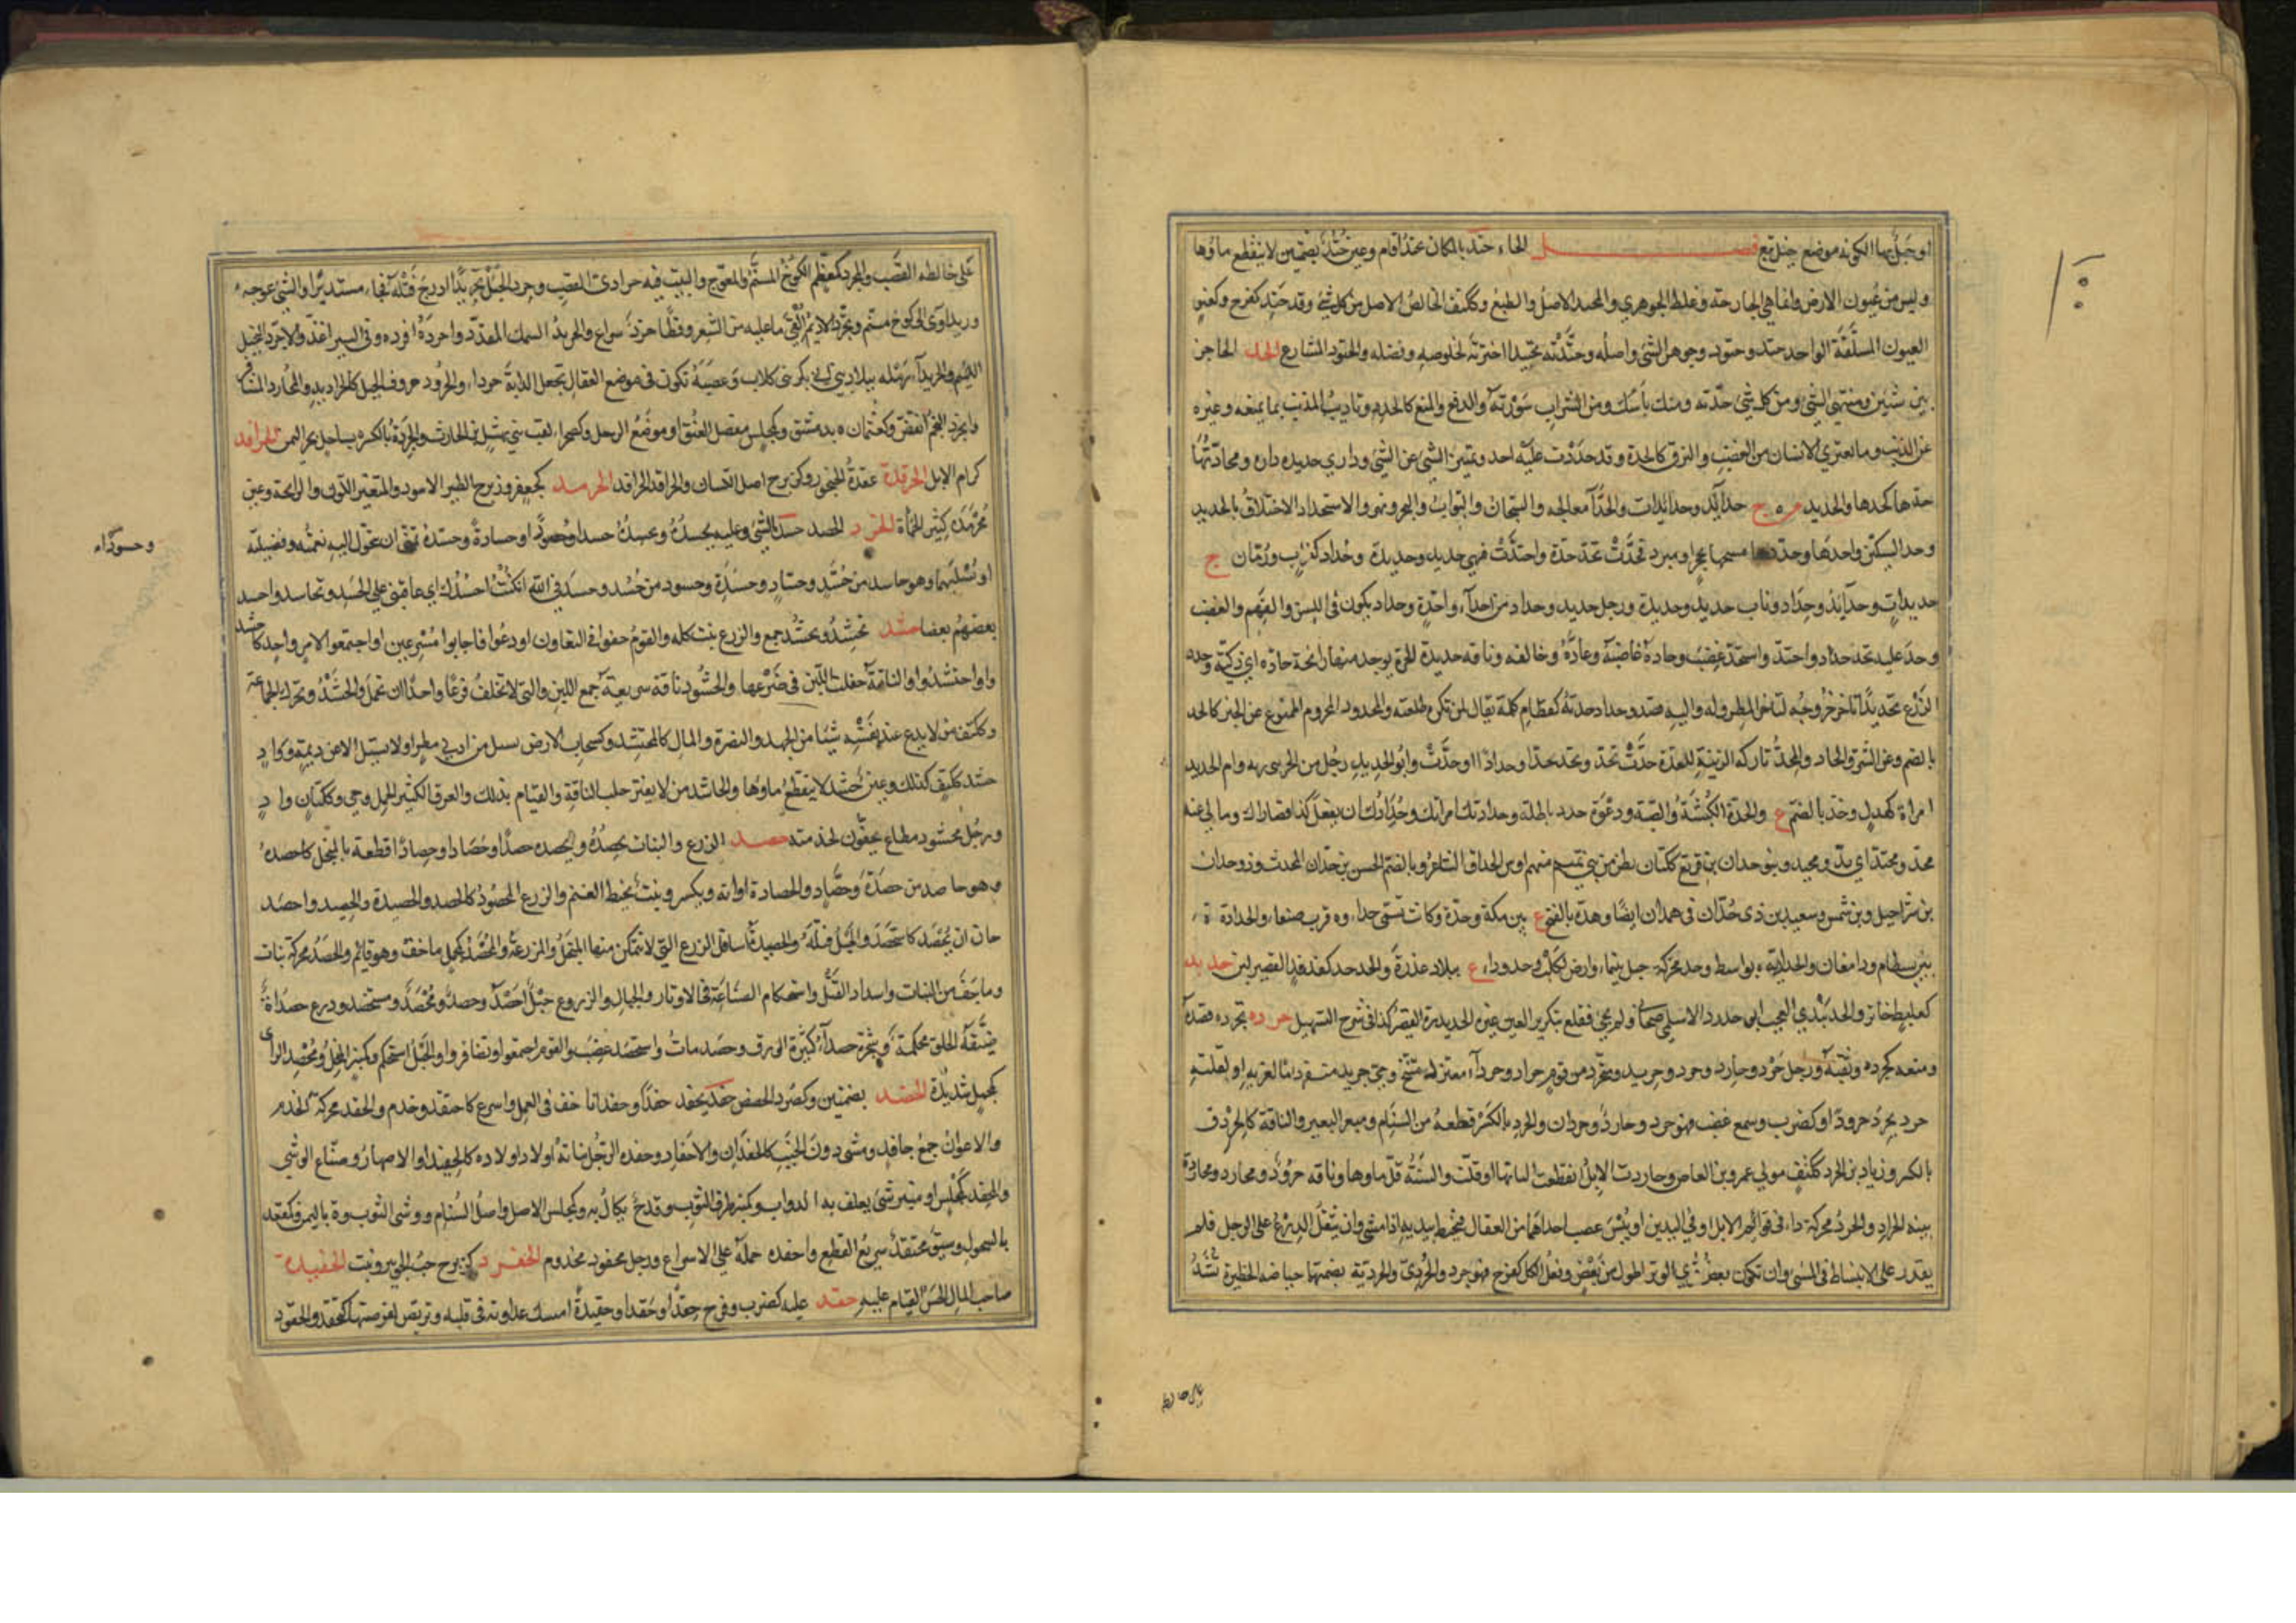 او جبل بها الكونه موضع جند تبع فصل الحاء حتد بالمكان يحتد اقام وعين حتد بضمتين لا ينقطع ماؤها
وليس من عيون الارض وانما هي الجارحة وغلط الجوهري والمحتد الاصل والطبع وككتف الخالص الاصل من كل شئ وقد حتد كفرح وكعنق
العيون المسلقة الواحد حتد وحتود وجوهر الشئ واصله وحتدته تحتيدا اخترته لخلوصه وفضله والحتود المشارع الحد الحاجز
بين شيئين ومنتهى الشئ ومن كل شئ حدته ومنك باسك ومن الشراب سورته والدفع والمنع كالحدد وتاديب المذنب بما يمنعه وغيره
عن الذنب وما يعتري الانسان من الغضب والنزق كالحدة وقد حددت عليه احد وتمييز الشئ عن الشئ وداري حديدة داره ومحادتها
حدها كحدها والحديد م ج حدائد وحدائدات والحداد معالجه والسجان والبواب والبحر ونهر والاستحداد الاحتلاق بالحديد
وحد السكين واحدها وحددها مسحها بحجر او مبرد فحدت تحد حدة واحتدت فهي حديد وحديدة وحداد كغراب ورمان ج
حديدات وحدائد وحداد وناب حديد وحديدة ورجل حديد وحداد من احداء واحدة وحداد يكون في اللسن والفهم والغضب
وحد عليه يحد حدادا واحتد واستحد غضب وحاده غاضبه وعاداه وخالفه وناقة حديدة الجرة يوجد منها رائحة حادة اي ذكية وحدد
الزرع تحديدا تاخر خروجه لتاخر المطر وله واليه قصد وحداد حدته كقطام كلمة تقال لمن تكره طلعته والمحدود المحروم الممنوع عن الخير كالحد
بالضم وعن الشر والحاد والمحد تاركة الزينة للعدة حدت تحد وتحد حدا وحدادا واحدت وابو الحديد رجل من الحرورية وام الحديد
امراة كهدل وحد بالضم ع والحدة الكثبة والصبة ودعوة حدد باطلة وحدادتك امراتك وحدادك ان يفعل كذا قصاراك وما لي عنه
محد ومحتد اي بد ومحيد وبنو حدان بن قريع ككتان بطن من بني تميم منهم اوس الحداني الشاعر وبالضم الحسن بن حدان المحدث وذو حدان
بن شراحيل وبن شمس وسعيد بن ذي حدان في همدان ايضا وحدة بالفتح ع بين مكة وجدة وكانت تسمى حداء وة قرب صنعاء والحدادة ة
بين بسطام ودامغان والحدادية ة بواسط وحدد محركة جبل بتيماء وارض لكلب وحدوداء ع ببلاد عذرة والحدحد كفدفد القصير لبن حدبد
كعلبط خاثر والحدبدى العجب ابو حدرد الاسلمي صحابي ولم يجئ فعلع بتكرير العين غيره الحديدرة القصير كذا في شرح التسهيل حرده يحرده قصده
ومنعه كحرده وثقبه ورجل حرد وحارد وحرد وحريد ومنحرد من قوم حراد وحرداء معتزل متنح وحي حريد منفرد اما لعزته او لقلته
حرد يحرد حرودا وكضرب وسمع غضب فهو حرد وحارد وحردان والحرد بالكسر قطعة من السنام ومبعر البعير والناقة كالحردة
بالكسر وزياد بن الحرد ككتف مولى عمرو بن العاص وحاردت الابل انقطعت البانها او قلت والسنة قل ماؤها وناقة حرود ومحارد ومحاردة
بينة الحراد والحرد محركة داء في قوائم الابل او في اليدين او يبس عصب احداهما من العقال فيخبط بيديه اذا مشى وان يثقل الدرع على الرجل فلم
يقدر على الانبساط في المشي وان يكون بعض قوى الوتر اطول من بعض وفعل الكل كفرح فهو حرد والحردي والحردية بضمهما حياصة الحظيرة تشد
على حائط القصب والمحرد كمعظم الكوخ المسنم والمعوج والبيت فيه حرادي القصب وحرد الحبل تحريدا ادرج فتله فجاء مستديرا والشئ عوجه
وزيد اوى الى كوخ مسنم وتحرد الاديم القى ما عليه من الشعر وقطا حرد سراع والحريد السمك المقدد واحرده افرده وفي السير اغذ والاحرد البخيل
اللئيم والحريداء رملة ببلاد بني ابي بكر بن كلاب وعصبة تكون في موضع العقال تجعل الدابة حرداء والحرود حروف الحبل كالحراديد والمحارد المشافر
وانحرد النجم انقض وكعثمان ة بدمشق وكمجلس مفصل العنق او موضع الرحل وكصحراء لقب بني نهشل بن الحارث والحردة بالكسر ة بساحل بحر اليمن الحرافد
كرام الابل الحرقدة عقدة الحنجور وكزبرج اصل اللسان والحراقد الحرافد الحرمد كجعفر وزبرج الطين الاسود والمتغير اللون والرائحة وعين
محرمدة كثير الحماة الحزد الحصد حسد الشئ وعليه يحسده ويحسده حسدا وحسودا وحسادة وحسده تمنى ان تتحول اليه نعمته وفضيلته
او يسلبهما وهو حاسد من حسد وحساد وحسدة وحسود من حسد وحسدني الله ان كنت احسدك اي عاقبني على الحسد وتحاسدوا حسد
بعضهم بعضا حشد يحشد ويحشد جمع والزرع نبت كله والقوم حفوا في التعاون او دعوا فاجابوا مسرعين او اجتمعوا لامر واحد كاحشد
وا واحتشدوا والناقة حفلت اللبن في ضرعها والحشود ناقة سريعة جمع اللبن والتي لا تخلف قرعا واحدا ان تحمل والحشد ويحرك الجماعة
وككتف من لا يدع عند نفسه شيئا من الجهد والنصرة والمال كالمحتشد وكسحاب الارض تسيل من ادنى مطر او لا تسيل الا عن ديمة وواد
حشد ككتف كذلك وعين حشد لا ينقطع ماؤها والحاشد من لا يفتر حلب الناقة والقيام بذلك والعذق الكثير الحمل وحي وككتان واد
ورجل محشود مطاع يخفون لخدمته حصد الزرع والنبات يحصده ويحصده حصدا وحصادا وحصادا قطعه بالمنجل كاحصده
وهو حاصد من حصدة وحصاد والحصادة اوانه ويكسر ونبت يخبط الغنم والزرع المحصود كالحصد والحصيدة والحصيد واحصد
حان ان يحصد كاستحصد والحبل فتله والحصيدة اسافل الزرع التي لا يتمكن منها المنجل والمزرعة والمحصد كمجمل ما جف وهو قائم والحصد محركة نبات
وما جف من النبات واشتداد الفتل واستحكام الصناعة في الاوتار والحبال والدروع حبل احصد وحصد ومحصد ومستحصد ودرع حصداء
ضيقة الحلق محكمة وشجرة حصداء كثيرة الورق وحصد مات واستحصد غضب والقوم اجتمعوا وتضافروا والحبل استحكم وكمنبر المنجل ومحصد الراي
كمجمل شديده الحضد بضمتين وكصرد الحضض حفد يحفد حفدا وحفدانا خف في العمل واسرع كاحتفد وخدم والحفد محركة الخدم
والاعوان جمع حافد ومشي دون الخبب كالحفدان والاحفاد وحفدة الرجل بناته او اولاد اولاده كالحفيد او الاصهار وصناع الوشي
والمحفد كمجلس او منبر شئ يعلف به الدواب وكمنبر طرف الثوب وقدح يكال به وكمجلس الاصل واصل السنام ووشي الثوب وة باليمن وكمقعد
بالسحول وسيف محتفد سريع القطع واحفده حمله على الاسراع ورجل محفود مخدوم الحفرد كزبرج حب الجوهر ونبت الحفيدة
صاحب المال الحسن القيام عليه حقد عليه كضرب وفرح حقدا وحقدا وحقيدة امسك عداوته في قلبه وتربص لفرصتها كتحقد والحقود
وحسودا